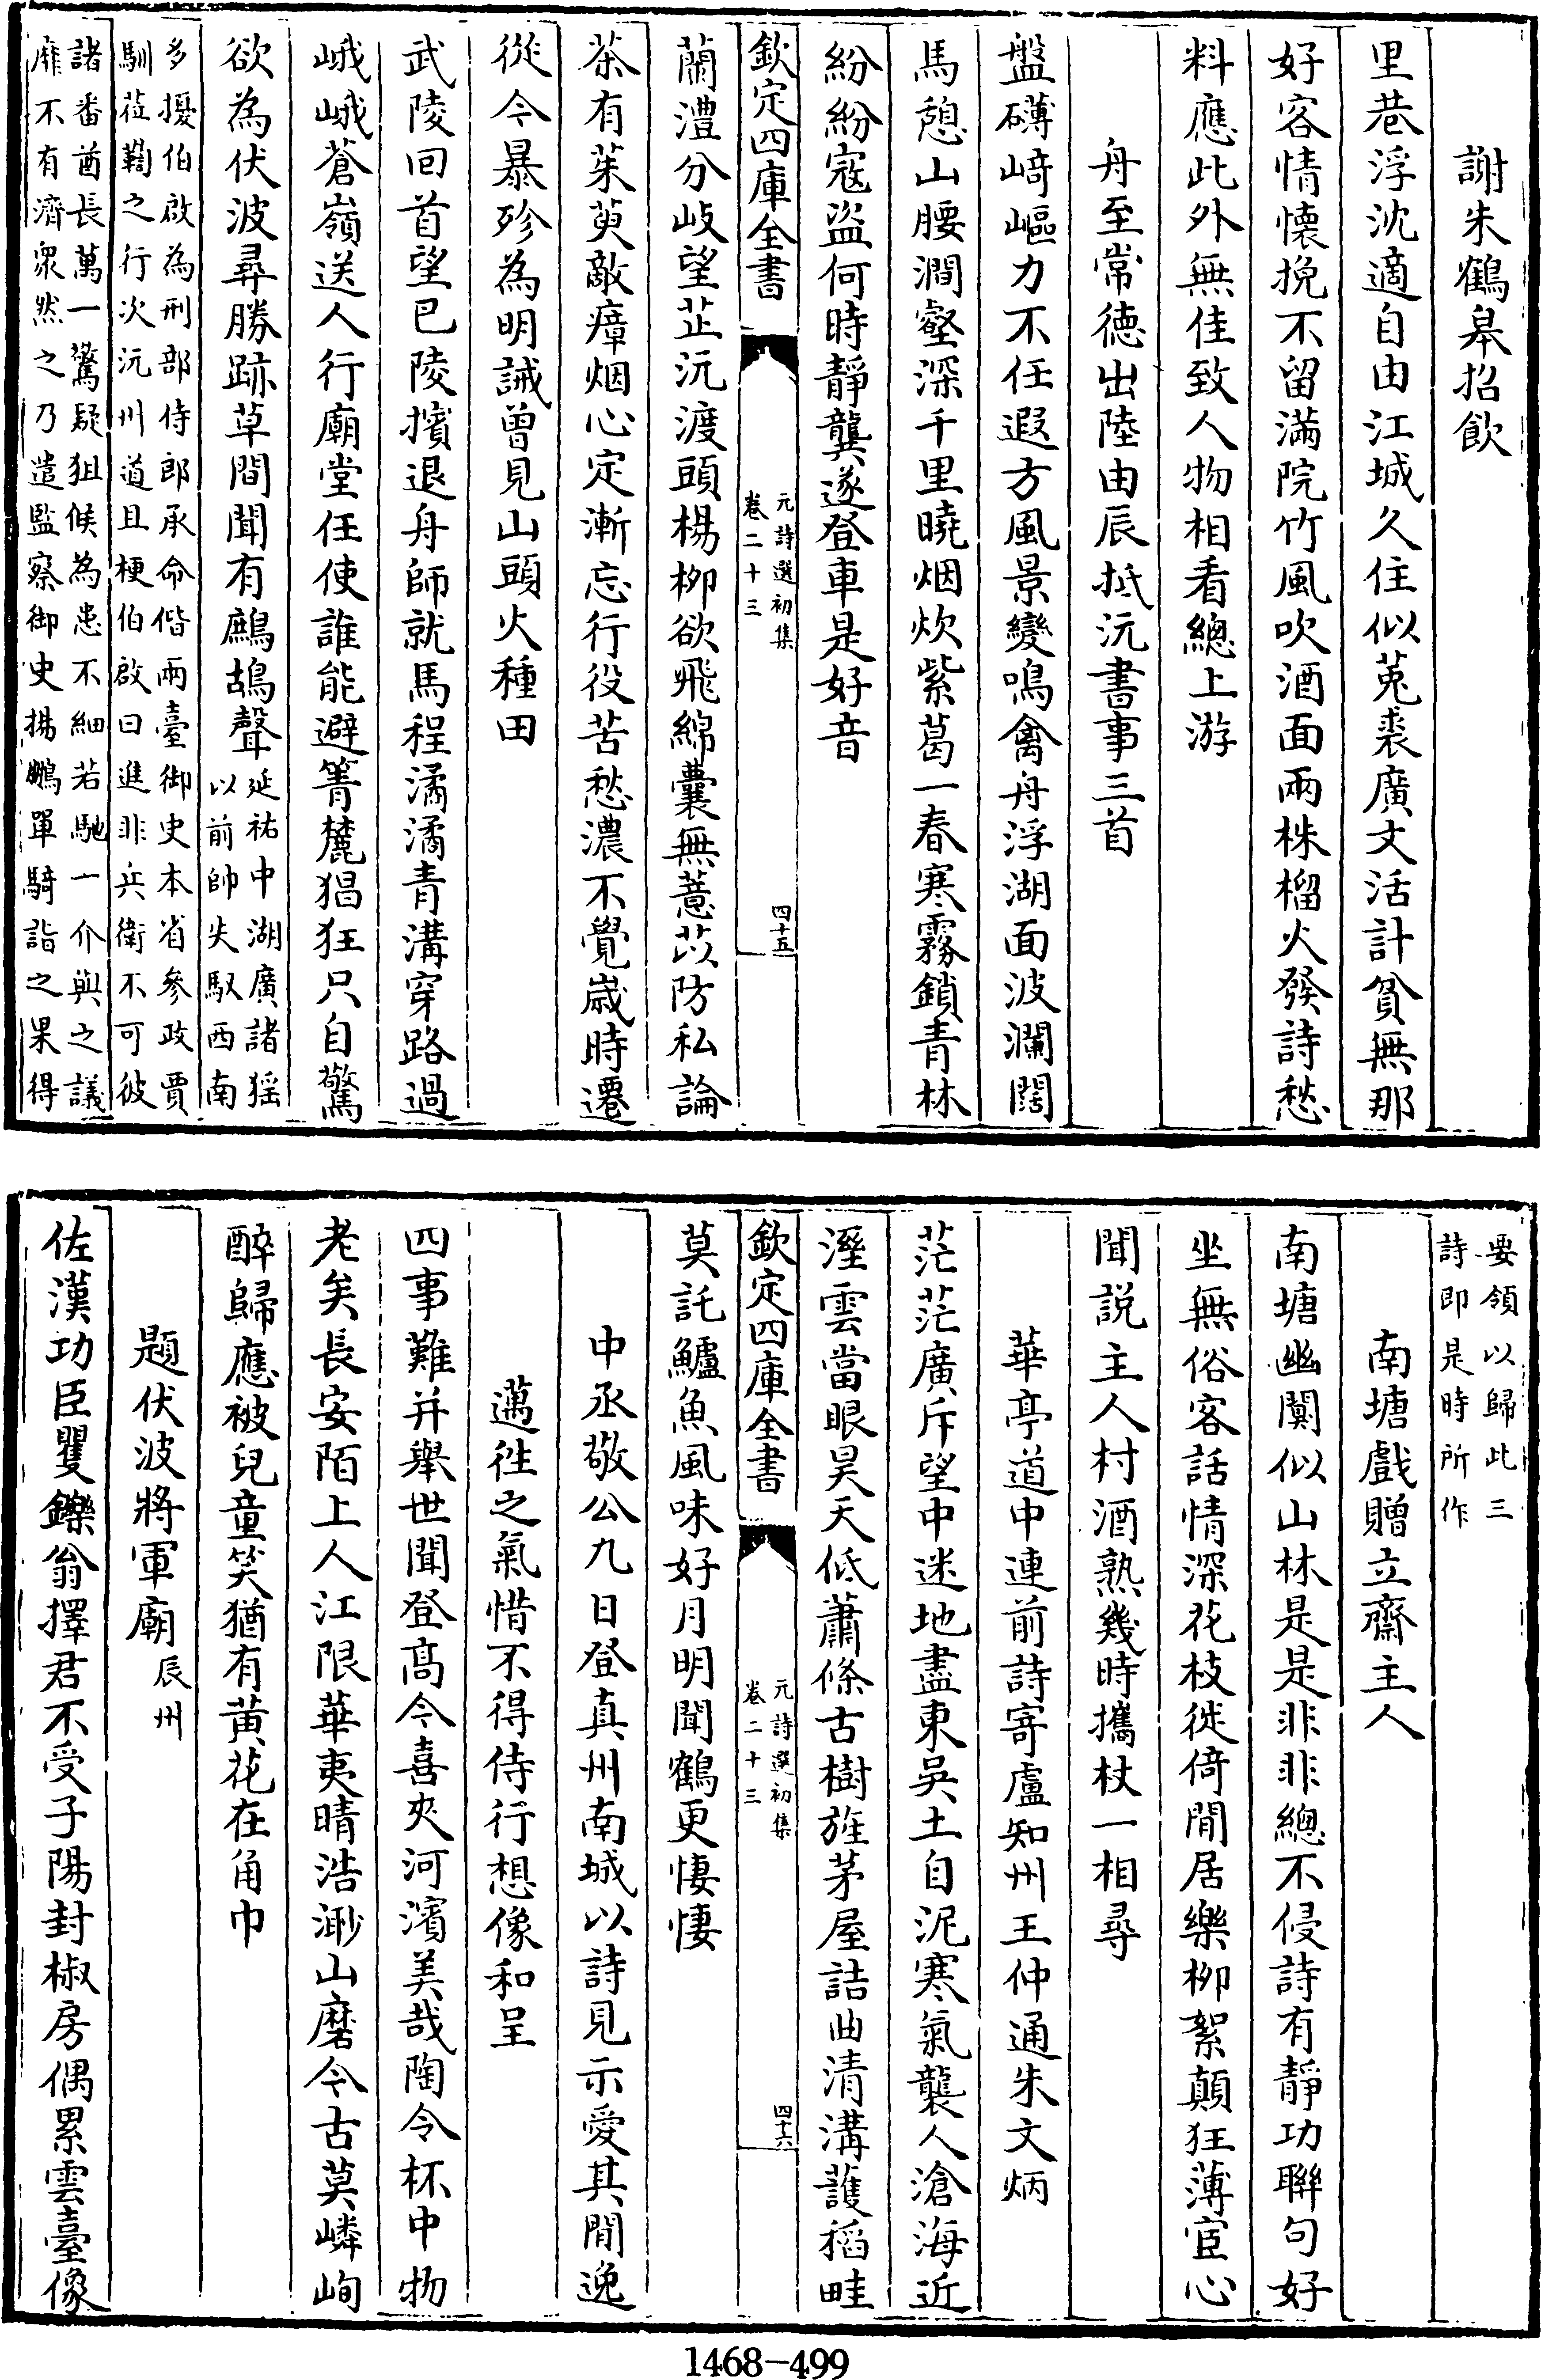 謝朱鶴皋招飲
里巷浮沈適自由江城久住似菟裘廣文活計貧無那
好客情懐挽不留滿院竹風吹酒面兩株榴火發詩愁
料應此外無佳致人物相看總上游
舟至常德出陸由辰抵沅書事三首
盤礴崎嶇力不任遐方風景變鳴禽舟浮湖面波瀾闊
馬憩山腰澗壑深千里曉烟炊紫葛一春寒霧鎖青林
紛紛寇盜何時靜龔遂登車是好音
欽定四庫全書
元詩選初集
卷二十三
四十五
蘭澧分岐望芷沅渡頭楊柳欲飛綿囊無薏苡防私論
茶有茱萸敵瘴烟心定漸忘行役苦愁濃不覺歲時遷
從今暴殄為明誡曾見山頭火種田
武陵回首望巴陵擯退舟師就馬程潏潏青溝穿路過
峨峨蒼嶺送人行廟堂任使誰能避箐麓猖狂只自驚
欲為伏波尋勝跡草間聞有鷓鴣聲
延祐中湖廣諸猺
以前帥失馭西南
多擾伯啟為刑部侍郎承命偕兩臺御史本省參政賈
馴蒞鞫之行次沅州道且梗伯啟曰進非兵衛不可彼
諸番酋長萬一驚疑狙候為患不細若馳一介與之議
靡不有濟衆然之乃遣監察御史楊鵬單騎詣之果得
要領以歸此三
詩即是時所作
南塘戲贈立齋主人
南塘幽闃似山林是是非非總不侵詩有靜功聯句好
坐無俗客話情深花枝徙倚閒居樂柳絮顛狂薄宦心
聞説主人村酒熟幾時攜杖一相尋
華亭道中連前詩寄盧知州王仲通朱文炳
茫茫廣斥望中迷地盡東吳土自泥寒氣襲人滄海近
溼雲當眼昊天低蕭條古樹旌茅屋詰曲清溝護稻畦
欽定四庫全書
元詩選初集
卷二十三
四十六
莫託鱸魚風味好月明聞鶴更悽悽
中丞敬公九日登真州南城以詩見示愛其閒逸
邁往之氣惜不得侍行想像和呈
四事難并舉世聞登高今喜夾河濱美哉陶令杯中物
老矣長安陌上人江限華夷晴浩渺山磨今古莫嶙峋
醉歸應被兒童笑猶有黄花在角巾
題伏波將軍廟辰州
佐漢功臣矍鑠翁擇君不受子陽封椒房偶累雲臺像
1468-499